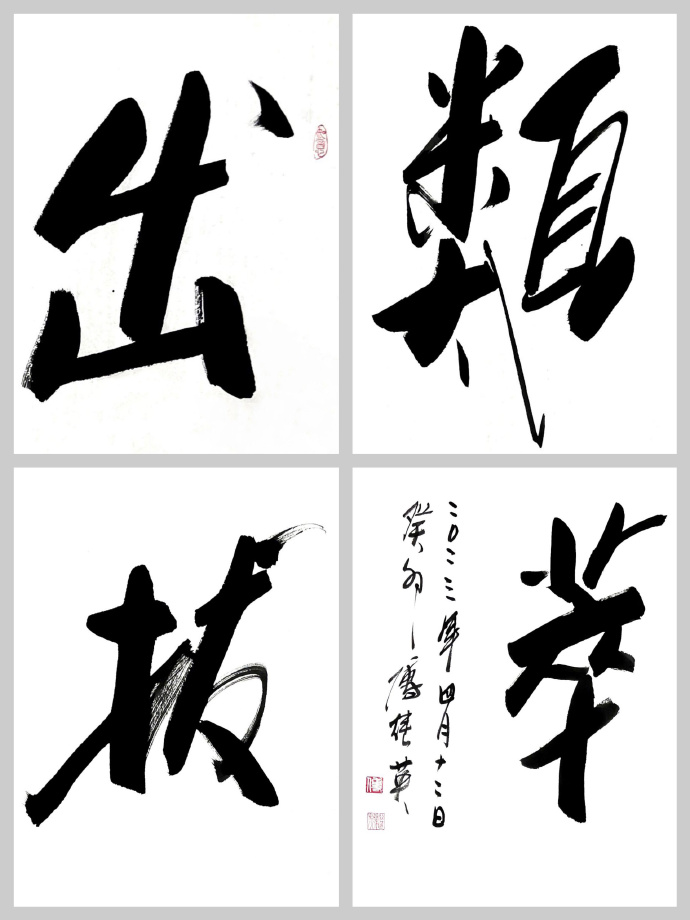 出
類
拔
萃
二〇二三年四月十二日
癸卯
桂英